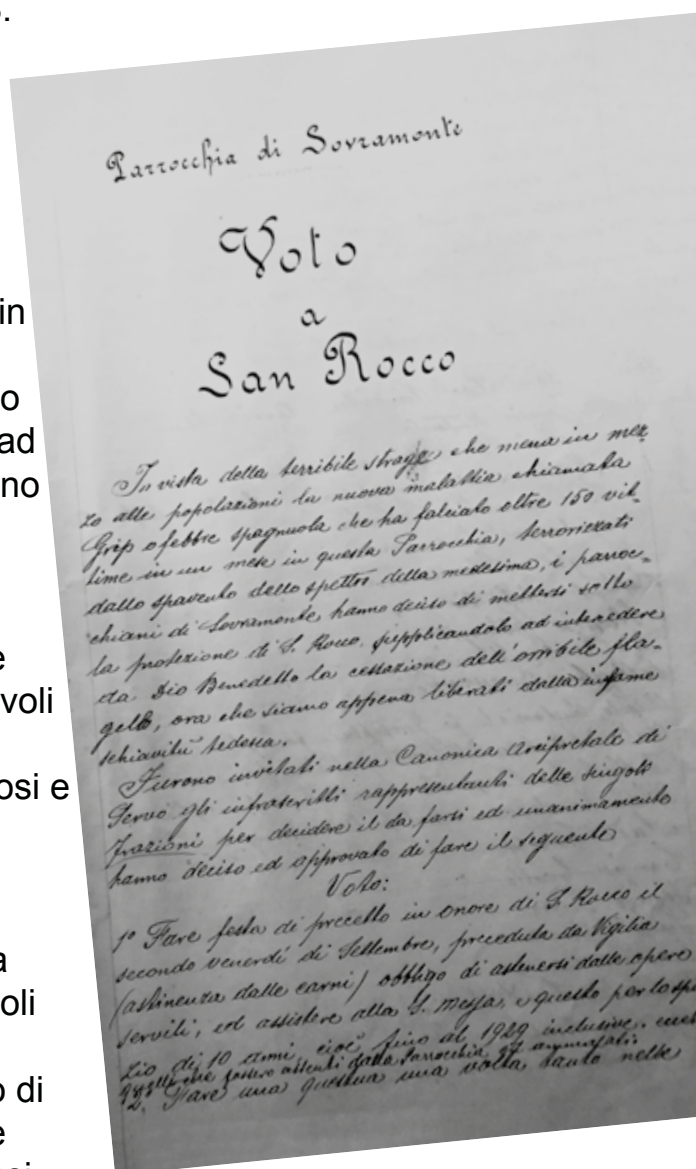 .
in
o
ad
no
e
voli
osi e
a
oli
o di
e
Parrocchia di Sovramonte
Voto
a
San Rocco
In vista della terribile strage che mena in mez
zo alle popolazioni la nuova malattia chiamata
Grip o febbre spagnuola che ha falciato oltre 150 vit-
time in un mese in questa Parrocchia, terrorizzati
dallo spavento dello spettro della medesima, i parroc-
chiani di Sovramonte hanno deciso di mettersi sotto
la protezione di S. Rocco, supplicandolo ad intercedere
da Dio Benedetto la cessazione dell'orribile fla-
gello, ora che siamo appena liberati dalla infame
schiavitù tedesca.
Furono invitati nella Canonica Arcipretale di
Servo gli infrascritti rappresentanti delle singole
frazioni per decidere il da farsi ed unanimamente
hanno deciso ed approvato di fare il seguente
Voto:
1º Fare festa di precetto in onore di S. Rocco il
secondo venerdì di Settembre, preceduta da Vigilia
(astinenza dalle carni) obbligo di astenersi dalle opere
servili, ed assistere alla S. Messa, e questo per lo spa
zio di 10 anni cioè fino al 1929 inclusive.
quelli che fossero assenti dalla Parrocchia od ammalati.
2º Fare una questua una volta tanto nelle